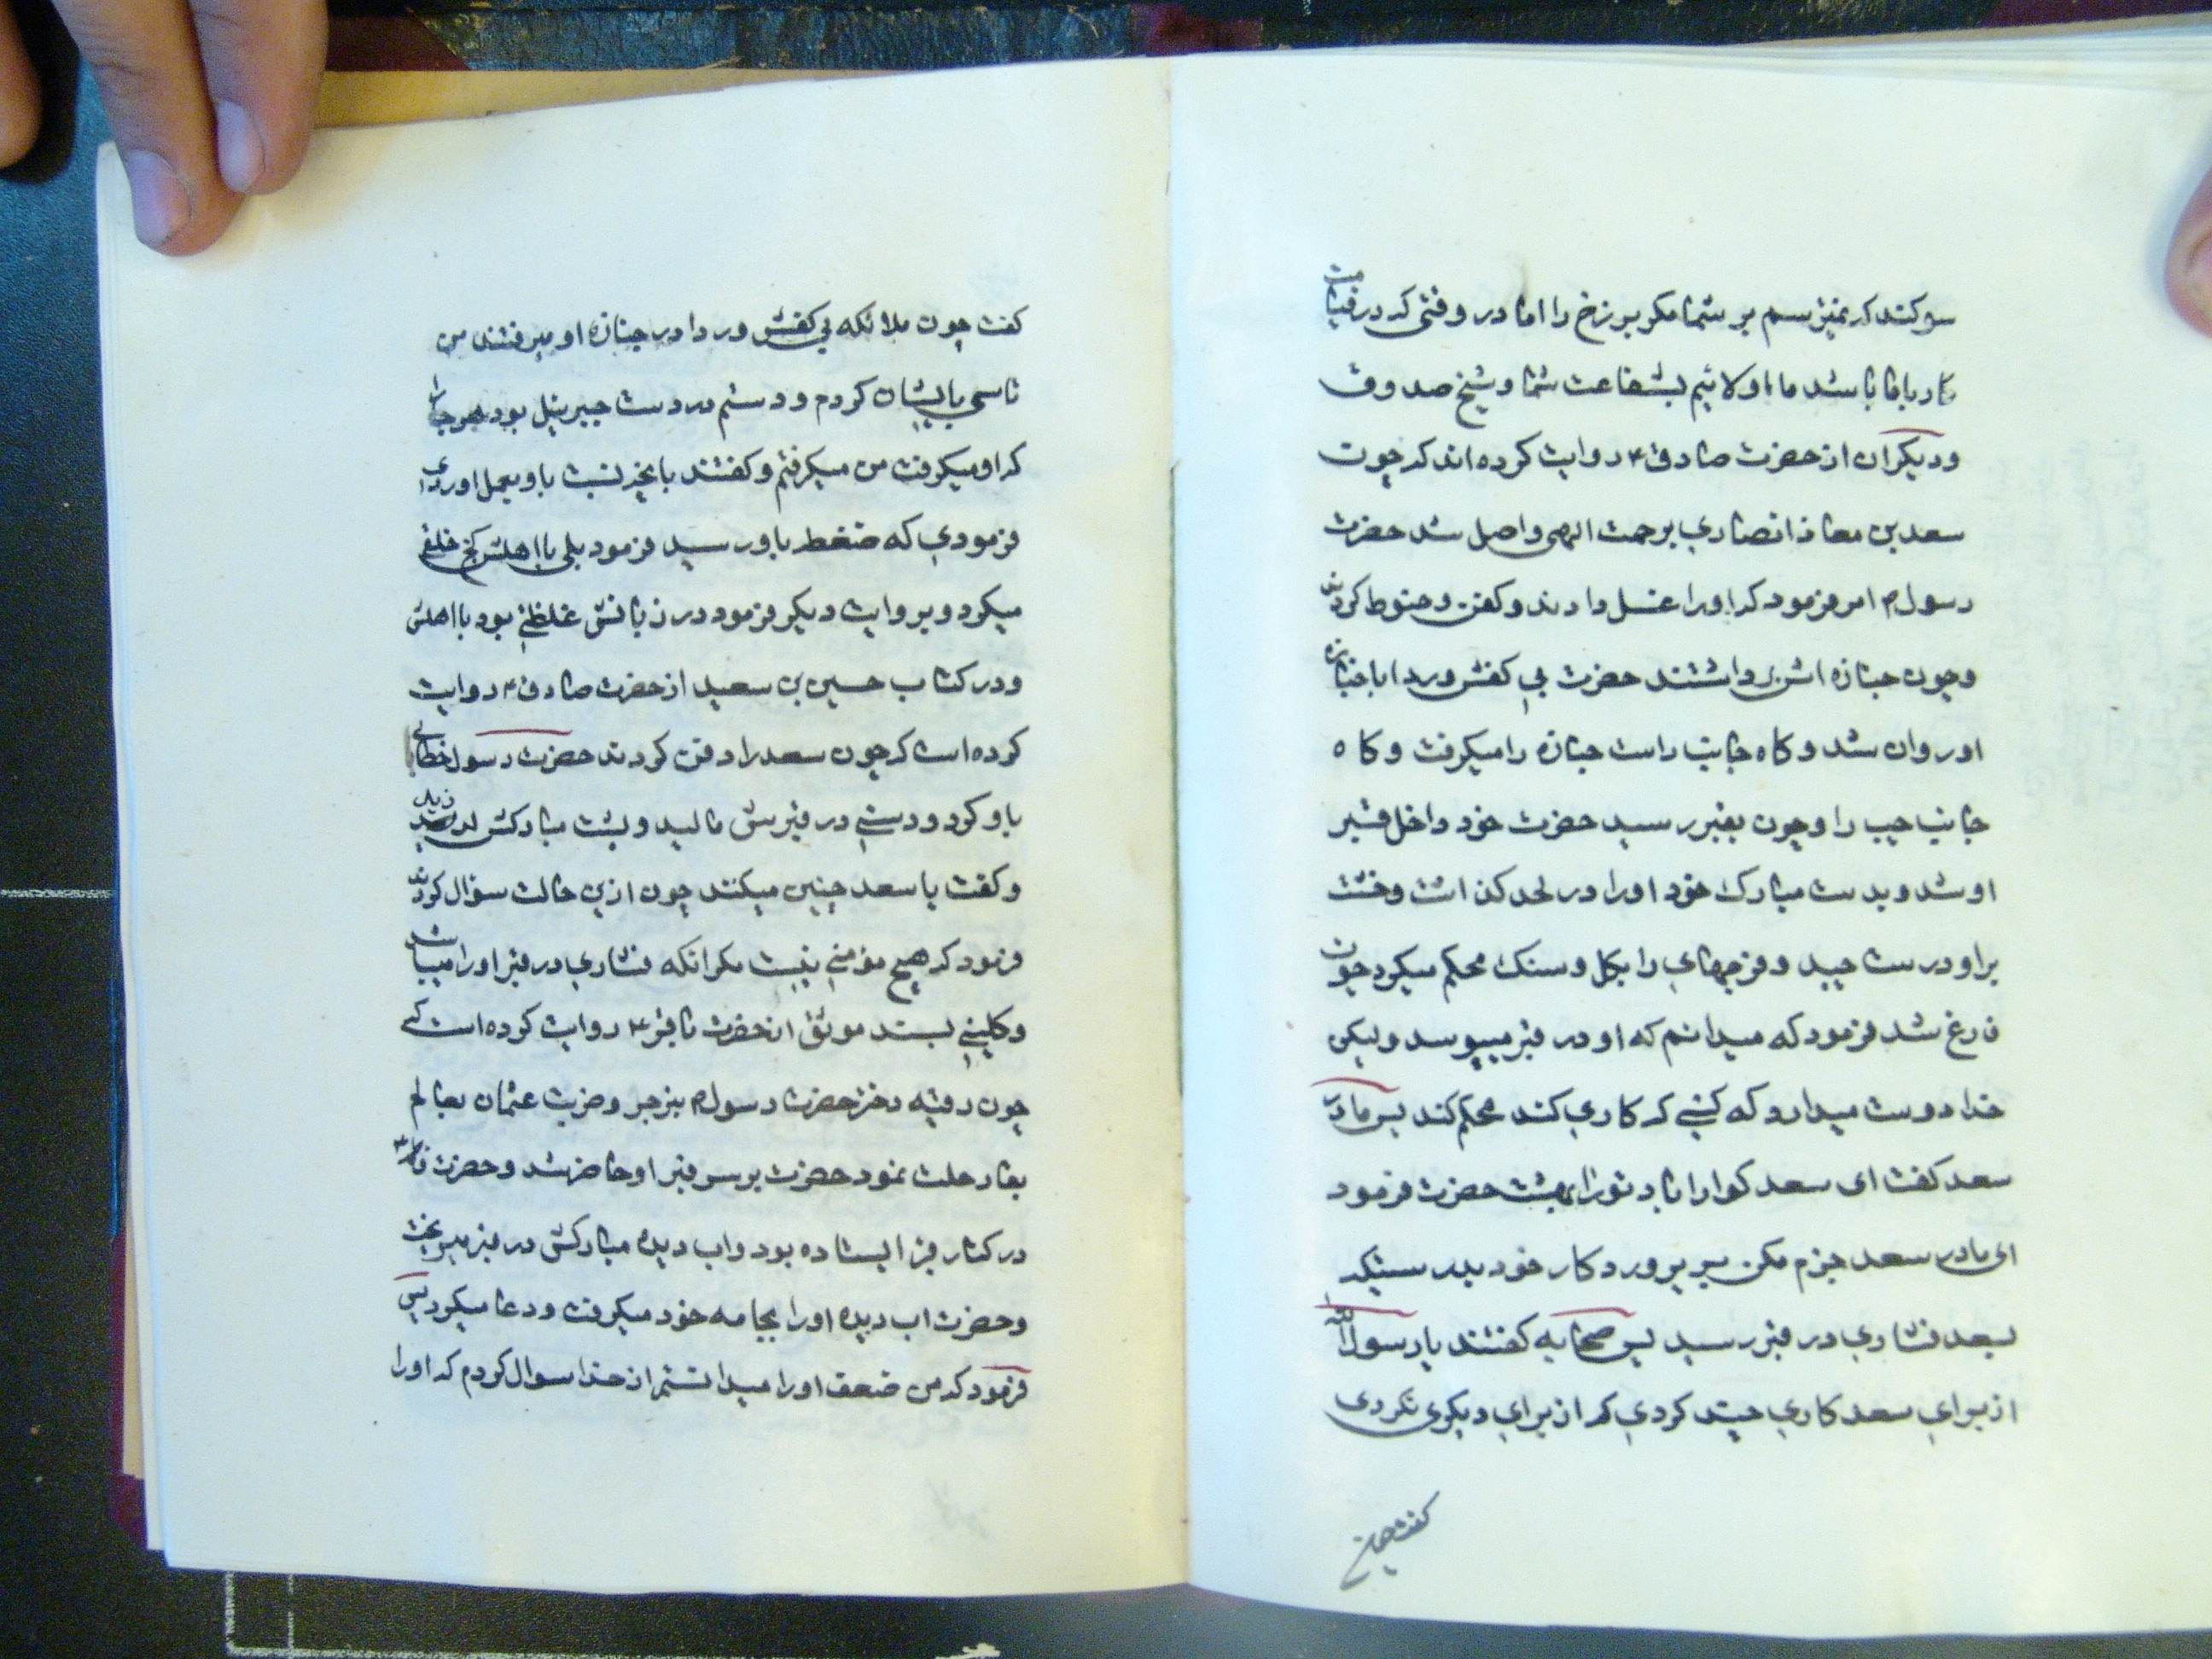 سوکند که نمیترسم بر شما مکر برزخ را اما در وقتی که در قیامت
کار با ما باشد ما اولائیم بشفاعت شما و شیخ صدوق
و دیکران از حضرت صادق ع روایت کرده اند که چون
سعد بن معاذ انصاری برحمت الهی واصل شد حضرت
رسول ص امر فرمود که او را غسل دادند و کفن و حنوط کردند
و چون جنازه اش برداشتند حضرت بی کفش و ردا با جنازه
او روان شد و کاه جانب راست جنازه را میکرفت و کاه
جانب چپ را و چون بقبر رسید حضرت خود داخل قبر
او شد و بدست مبارک خود او را در لحد کذاشت و خشت
بر او درست چید و فرجهای را بکل و سنک محکم میکرد چون
فارغ شد فرمود که میدانم که او در قبر میپوسد و لیکن
خدا دوست میدارد که کسی که کاری کند محکم کند پس مادر
سعد کفت ای سعد کوارا باد تو را بهشت حضرت فرمود
ای مادر سعد جزم مکن بر پروردکار خود بدرستیکه
بسعد فشاری در قبر رسید پس صحابه کفتند یا رسول الله
از برای سعد کاری چند کردی که از برای دیکری نکردی
کفت چون
کفت چون ملائکه بی کفش و ردا در جنازه او میرفتند من
تاسی بایشان کردم و دستم در دست جبرئیل بود هر جا را
که او میکرفت من میکرفتم و کفتند با انچه نسبت باو بعمل اوردی
فرمودی که ضغطه باو رسید فرمود بلی با اهلش کج خلقی
میکرد و بروایت دیکر فرمود در زبانش غلظتی بود با اهلش
و در کتاب حسین بن سعید از حضرت صادق ع روایت
کرده است که چون سعد را دفن کردند حضرت رسول خطابی
باو کرد و دستی در قبرش مالید و پشت مبارکش لرزید
و کفت با سعد چنین میکنند چون ازین حالت سؤال کردند
فرمود که هیچ مؤمنی نیست مکر انکه فشاری در قبر او را میباشد
و کلینی بسند موثق از حضرت باقر ع روایت کرده است که
چون رقیه دختر حضرت رسول ص بزجر و ضرب عثمان بعالم
بقا رحلت نمود حضرت بر سر قبر او حاضر شد و حضرت فاطمه ع
در کنار قبر ایستاده بود و اب دیده مبارکش در قبر میریخت
و حضرت اب دیده او را بجامه خود میکرفت و دعا میکرد پس
فرمود که من ضعف او را میدانستم از خدا سوال کردم که او را